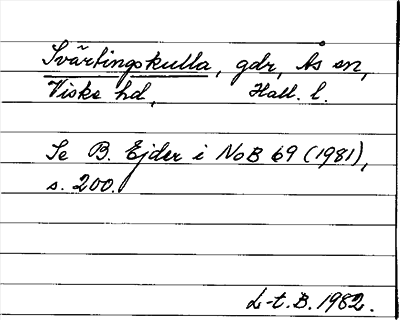 Svärtingskulla, gdr, Ås sn,
Viske hd, Hall. l.
Se B. Ejder i NoB 69 (1981),
s. 200.
L-t. B. 1982.